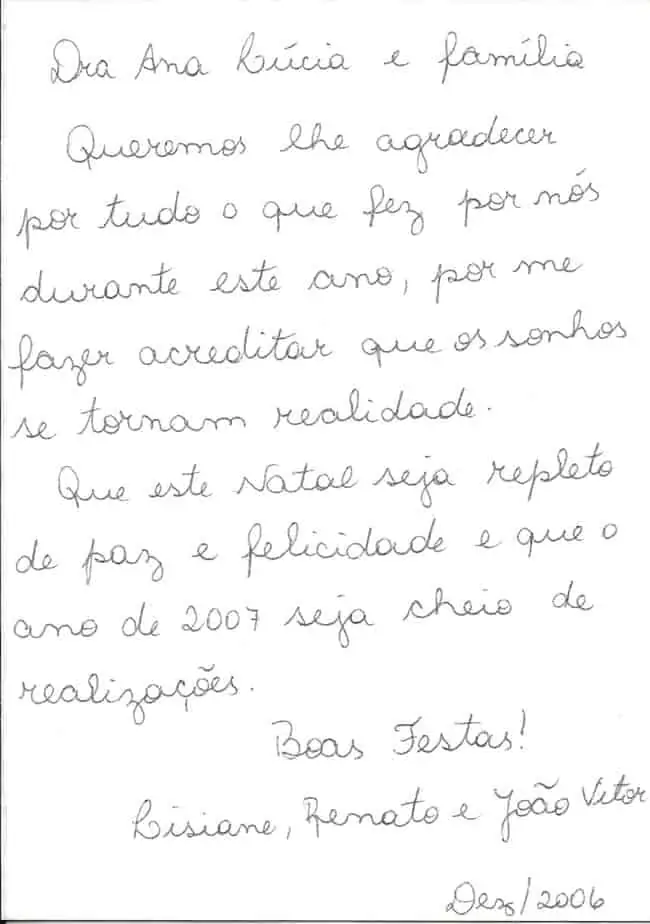 Dra Ana Lúcia e família
Queremos lhe agradecer
por tudo o que fez por nós
durante este ano, por me
fazer acreditar que os sonhos
se tornam realidade.
Que este Natal seja repleto
de paz e felicidade e que o
ano de 2007 seja cheio de
realizações.
Boas Festas!
Lisiane, Renato e João Vitor
Dez/2006